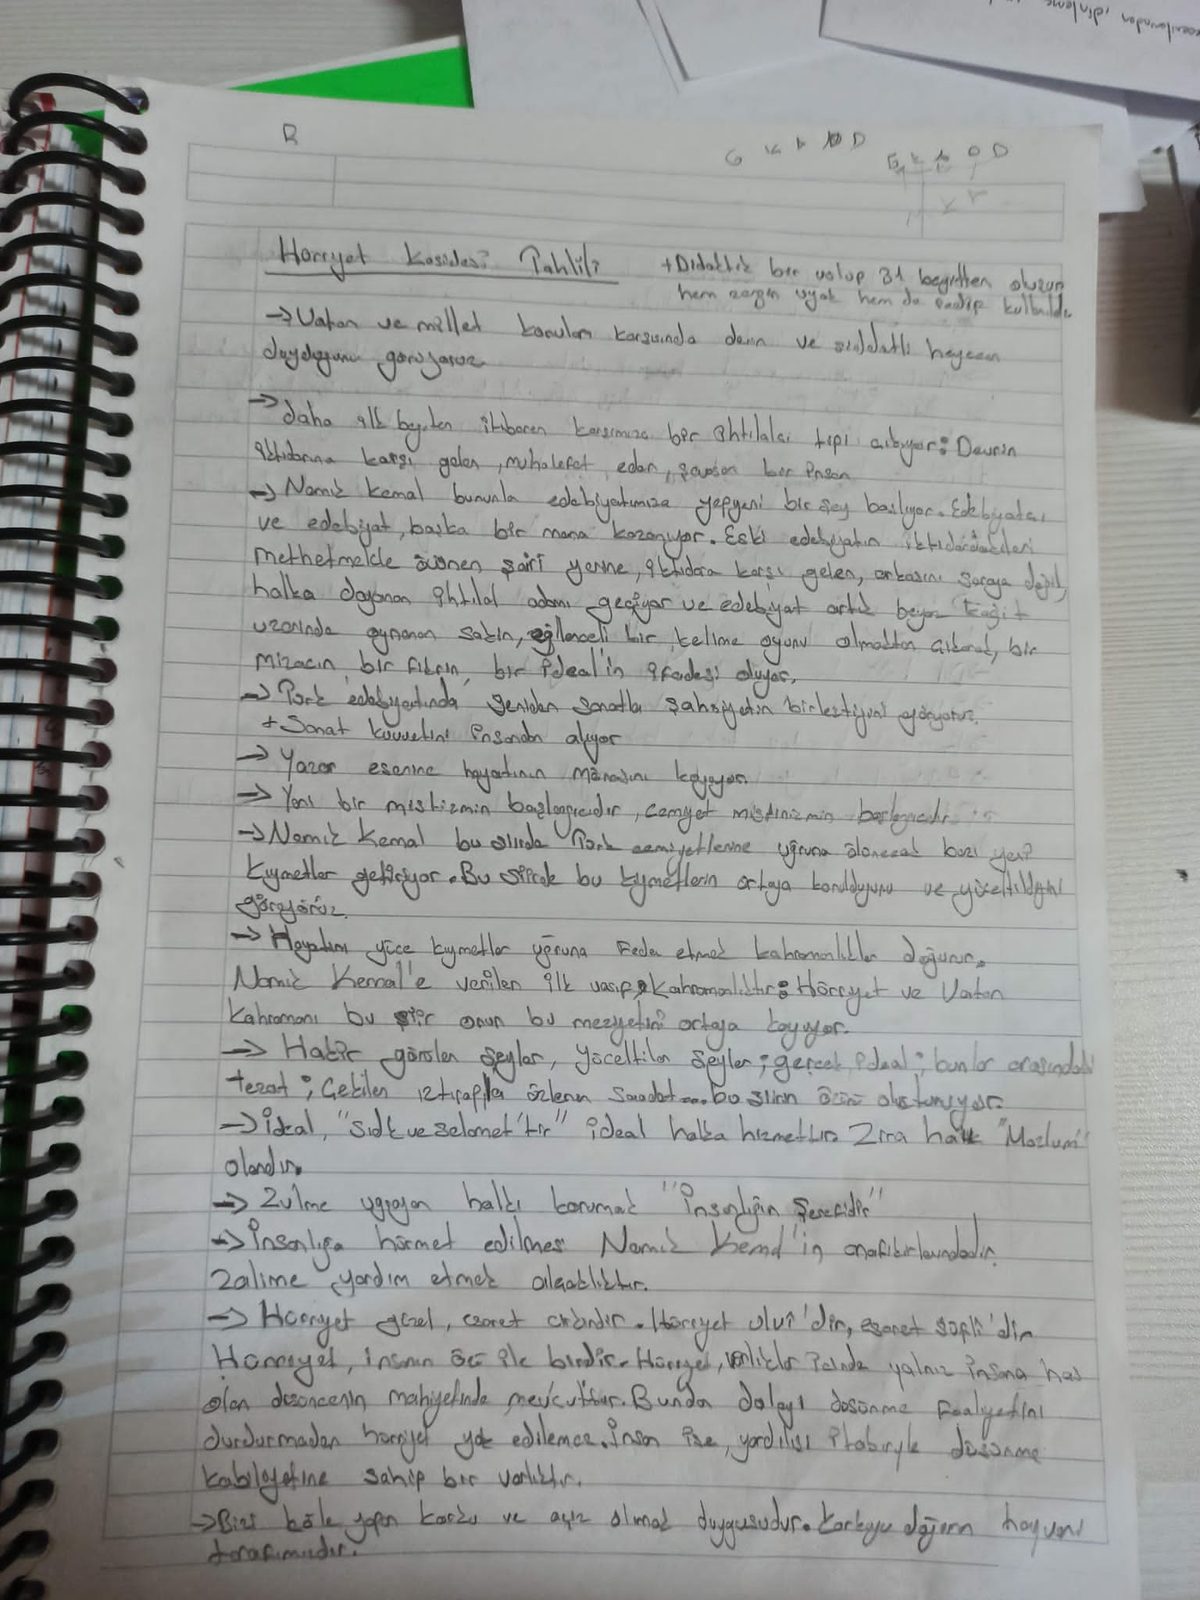 Hürriyet Kasidesi Tahlili
+Didaktik bir uslup 31 beyitten oluşur
hem zengin uyak hem de redif kullanıldı.
→Vatan ve millet konuları karşısında derin ve şiddetli heyecan
duyduğunu görüyoruz.
→daha ilk beyiten itibaren karşımıza bir ihtilalci tipi çıkıyor: Devrin
iktidarına karşı gelen, muhalefet eden, bir insan
→ Namık Kemal bununla edebiyatımıza yepyeni bir şey başlıyor. Edebiyatçı
ve edebiyat, başka bir mana kazanıyor. Eski edebiyatın iktidardakileri
methetmekle övünen şairi yerine, iktidara karşı gelen, arkasını saraya değil,
halka dayanan ihtilal adamı geçiyor ve edebiyat artık beyaz kağıt
üzerinde oynanan sakin, eğlenceli bir kelime oyunu olmaktan çıkarak, bir
mizacın, bir fikrin, bir ideal'in ifadesi oluyor.
→ Türk edebiyatında yeniden sanatla şahsiyetin birleştiğini görüyoruz.
+ Sanat kuvvetini insandan alıyor
→ Yazar eserine hayatının mânasını koyuyor.
→ Yeni bir mistizmin başlangıcıdır, cemiyet mistizinizmin başlangıcıdır.
→Namık Kemal bu şiirde Türk cemiyetlerine uğruna ölünecek bazı yeni
kıymetler getiriyor. Bu şiirde bu kıymetlerin ortaya konulduğunu ve yüceltildiğini
görüyoruz.
→ Hayatını yüce kıymetler uğruna feda etmek kahramanlıklar doğurur.
Namık Kemal'e verilen ilk vasıf, kahramanlıktır: Hürriyet ve Vatan
kahramanı bu şiir onun bu meziyetini ortaya koyuyor.
→ Hakir görülen şeyler, yüceltilen şeyler; gerçek, ideal; bunlar arasındaki
tezat; çekilen ıztırapla özlenen saadet... bu şiirin özünü oluşturuyor.
→İdeal, "sıdk ve selamet'tir" ideal halka hizmettir. Zira halk "Mazlum"
olandır.
→ Zulme uğrayan halkı korumak "İnsanlığın Şerefidir"
→İnsanlığa hürmet edilmesi Namık Kemal'in anafikirlerindendir.
Zalime yardım etmek alçaklıktır.
→ Hürriyet güzel, esaret çirkindir. Hürriyet ulvi'dir, esaret süfli'dir.
Hürriyet, insanın özü ile birdir. Hürriyet, varlıklar içinde yalnız insana has
olan düşüncenin mahiyetinde mevcuttur. Bundan dolayı düşünme faaliyetini
durdurmadan hürriyet yok edilemez. İnsan ise, yaradılışı itabıryle düşünme
kabiliyetine sahip bir varlıktır.
→Bizi köle yapan korku ve aciz olmak duygusudur. Korkuyu doğuran hayvani
tarafımızdır.